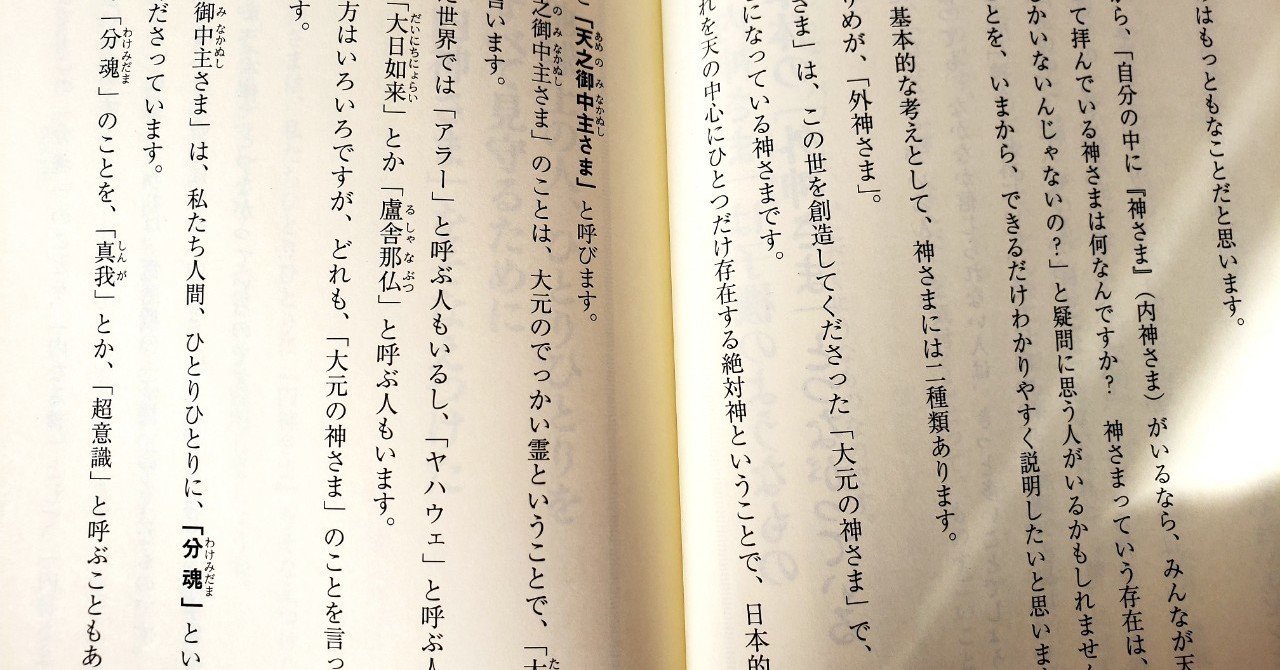 はもっともなことだと思います。
ら、「自分の中に『神さま』（内神さま）がいるなら、みんなが天
て拝んでいる神さまは何なんですか？　神さまっていう存在は、
しかいないんじゃないの？」と疑問に思う人がいるかもしれません
とを、いまから、できるだけわかりやすく説明したいと思いま
基本的な考えとして、神さまには二種類あります。
りめが、「外神さま」。
さま」は、この世を創造してくださった「大元の神さま」で、
になっている神さまです。
れを天の中心にひとつだけ存在する絶対神ということで、日本的
あめのみなかぬし
「天之御中主さま」と呼びます。
のみなかぬし
之御中主さま」のことは、大元のでっかい霊ということで、「
言います。
世界では「アラー」と呼ぶ人もいるし、「ヤハウェ」と呼ぶ人
だいにちにょらい　るしゃなぶつ
「大日如来」とか「盧舎那仏」と呼ぶ人もいます。
方はいろいろですが、どれも、「大元の神さま」のことを言っ
す。
みなかぬし　わけみだま
御中主さま」は、私たち人間、ひとりひとりに、「分魂」とい
ださっています。
わけみだま　しんが
「分魂」のことを、「真我」とか、「超意識」と呼ぶこともあ